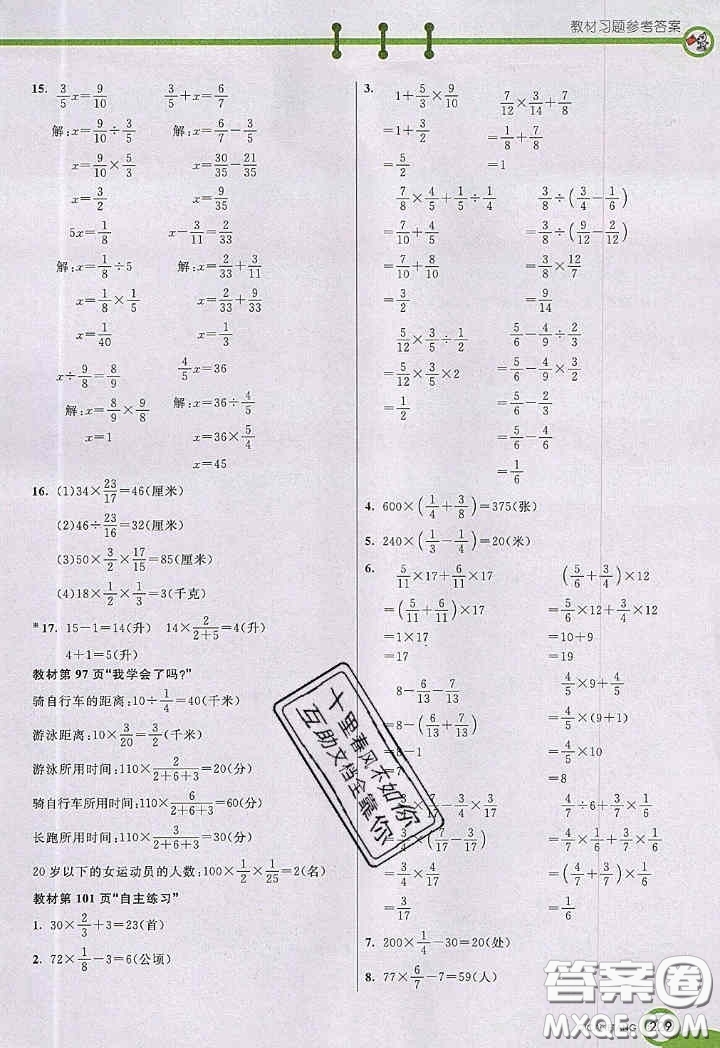 教材习题参考答案
15. 3/5 x=9/10    3/5+x=6/7
解:x=9/10÷3/5    解:x=6/7-3/5
x=9/10×5/3    x=30/35-21/35
x=3/2    x=9/35
5x=1/8    x-3/11=2/33
解:x=1/8÷5    解:x=2/33+3/11
x=1/8×1/5    x=2/33+9/33
x=1/40    x=1/3
x÷9/8=8/9    4/5 x=36
解:x=8/9×9/8    解:x=36÷4/5
x=1    x=36×5/4
x=45
16. (1)34×23/17=46(厘米)
(2)46÷23/16=32(厘米)
(3)50×3/2×17/15=85(厘米)
(4)18×1/2×1/3=3(千克)
*17. 15-1=14(升)  14×2/(2+5)=4(升)
4+1=5(升)
教材第 97 页“我学会了吗?”
骑自行车的距离:10÷1/4=40(千米)
游泳距离:10×3/20=3/2(千米)
游泳所用时间:110×2/(2+6+3)=20(分)
骑自行车所用时间:110×6/(2+6+3)=60(分)
长跑所用时间:110×3/(2+6+3)=30(分)
20 岁以下的女运动员的人数:100×1/2×1/25=2(名)
教材第 101 页“自主练习”
1. 30×2/3+3=23(首)
2. 72×1/8-3=6(公顷)
3. 1+5/3×9/10    7/16×2/7+7/8
=1+3/2    =1/8+7/8
=5/2    =1
7/8×4/5+1/5÷1/4    3/8÷(3/4-1/6)
=7/10+4/5    =3/8÷(9/12-2/12)
=3/2    =3/8×12/7
=9/14
5/12×3/5÷1/2    5/6-4/9÷2/3
=5/12×3/5×2    =5/6-4/9×3/2
=1/2    =5/6-2/3
=1/6
4. 600×(1/4+3/8)=375(张)
5. 240×(1/3-1/4)=20(米)
6. 5/11×17+6/11×17    (5/6+3/4)×12
=(5/11+6/11)×17    =5/6×12+3/4×12
=1×17    =10+9
=17    =19
8-6/13-7/13    4/5×9+4/5
=8-(6/13+7/13)    =4/5×(9+1)
=8-1    =4/5×10
=8
4/7×1/6+3/7×1/6
7. 200×1/4-30=20(处)
8. 77×6/7-7=59(人)
十里春风不如你
互助文档全靠你
答案卷
MXQE.COM